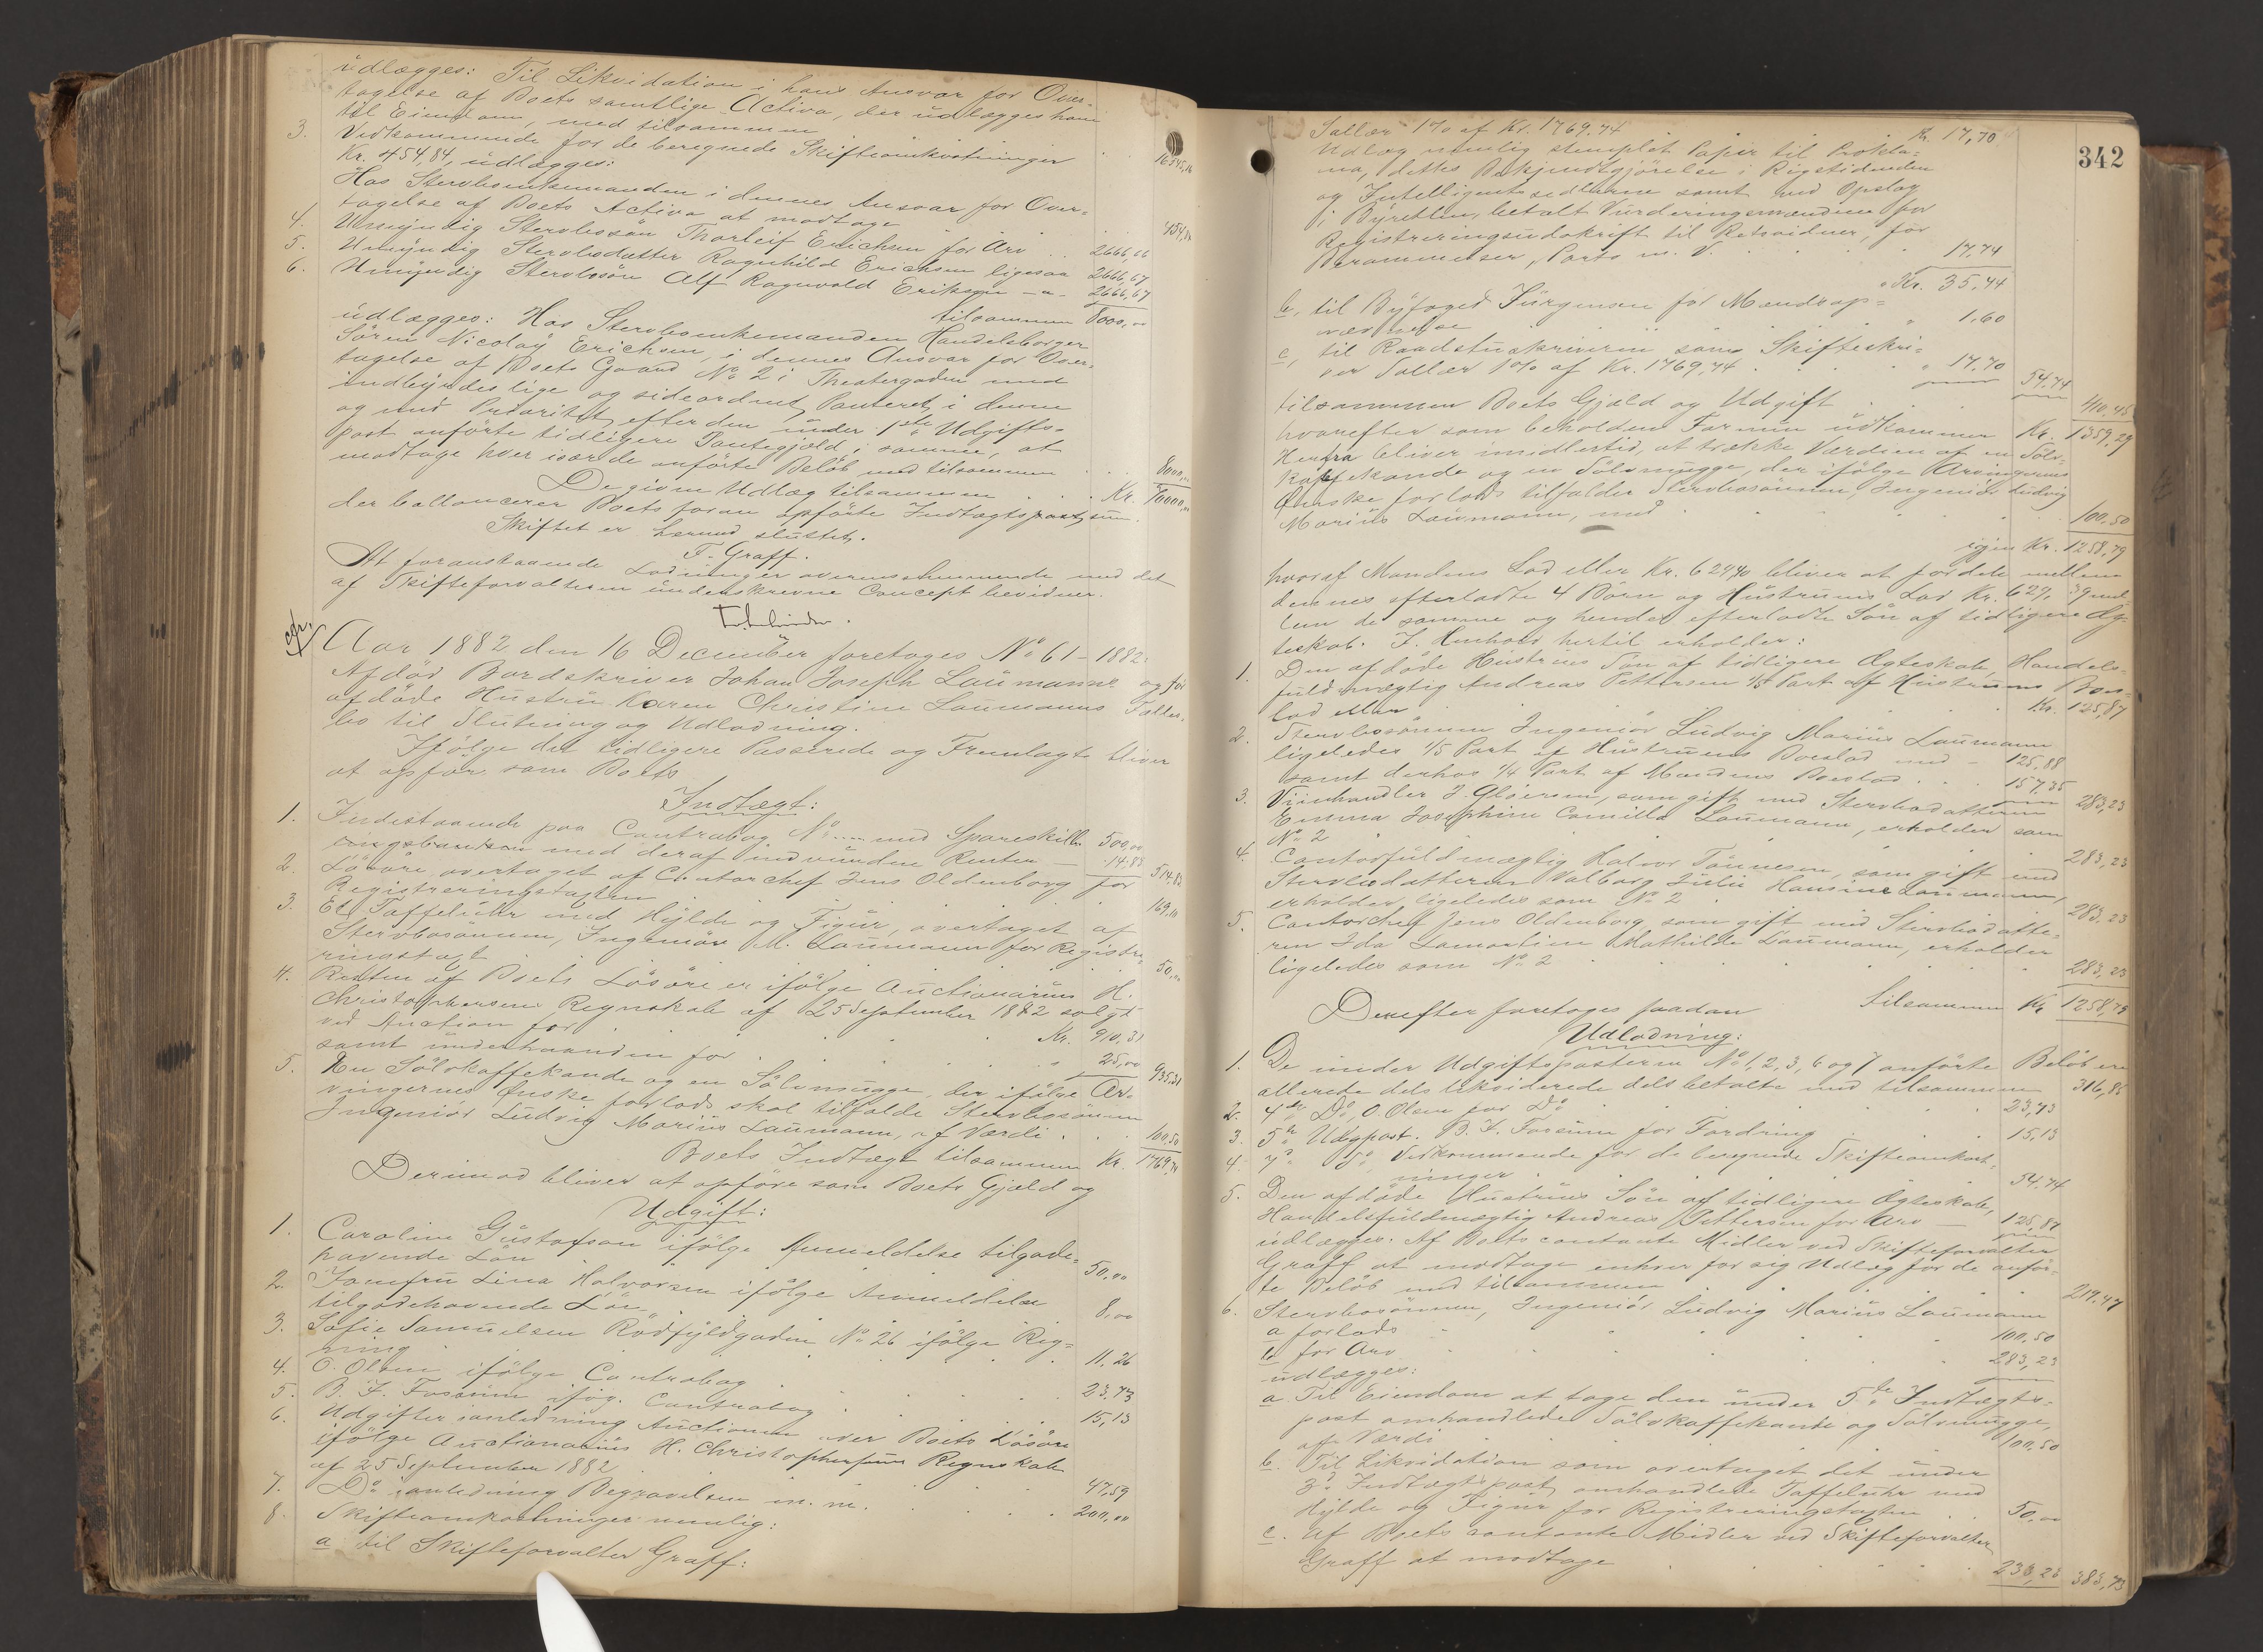 udlægges: Til Likvidation i hans Ansvar for Over-
tagelse af Boets samtlige Activa, der udlægges ham
til Eiendom, med tilsammen 16545,16
3. Vedkommende for de beregnede Skifteomkostninger
Kr. 454,84, udlægges:
Hos Stervboenkemanden i dennes Ansvar for Over-
tagelse af Boets Activa at modtage 454,84
4. Umyndig Stervbosøn Thorleif Erichsen for Arv 2666,66
5. Umyndig Stervbodatter Ragnhild Erichsen ligesaa 2666,67
6. Umyndig Stervbosøn Alf Ragnvald Eriksen -"- 2666,67
tilsammen 8000,00
udlægges: Hos Stervboenkemanden Handelsborger
Sören Nicolay Erichsen, i dennes Ansvar for Over-
tagelse af Boets Gaard No 2 i Theatergaden med
indbyrdes lige og sideordnet Panteret i denne
og med Prioritet efter den under 1ste Udgifts-
post anførte tidligere Pantegjæld i samme, at
modtage hver især de anførte Beløb med tilsammen 8000,00
De givne Udlæg tilsammen Kr.
der ballancerer Boets foran opførte Indtægtspost sum.
Skiftet er hermed sluttet.
F. Graff.
At foranstaaende Lodninger overensstemmende med det
af Skifteforvalteren underskrevne Concept bevidner.
Aar 1882 den 16 December foretoges No 61 - 1882:
Afdød Bordskriver Johan Joseph Laumanns og før
afdøde Hustru Karen Christine Laumanns Fælles-
bo til Slutning og Udlodning.
Ifølge det tidligere Passerede og Fremlagte bliver
at opføre som Boets
Indtægt:
1. Indestaaende paa Contrabog No .... med Spareskill- 500,00
ingsbanken med deraf indvunden Renter - 14.83 514,83
2. Løsøre overtaget af Contorchef Jens Oldenborg for
Registreringstaxten 169,10
3. Et Taffeluhr med Hylde og Figur, overtaget af
Stervbosønnen, Ingeniør M. Laumann for Registre-
ringstaxt 50,00
4. Resten af Boets Løsøre er ifølge Auctionarius H.
Christophersens Regnskab af 25 September 1882 solgt
ved Auction for Kr. 910.31
samt underhaanden for " 25,00 935,31
5. En Sølvkaffekande og en Sølvmugge, der ifølge Ar-
vingernes Ønske forlods skal tilfalde Stervbosønnen
Ingeniør Ludvig Marius Laumann, af Værdi 100,50
Boets Indtægt tilsammen Kr. 1769,74
Derimod bliver at opføre som Boets Gjæld og
Udgift:
1. Caroline Gustafson ifølge Anmeldelse tilgode-
havende Løn 50,00
2. Jomfru Lina Halvorsen ifølge Anmeldelse
tilgodehavende Løn 8,00
3. Sofie Samuelsen Rødfyldgaden No 26 ifølge Reg-
ning 11,26
4. O. Olsen ifølge Contrabog 23,73
5. B. F. Fossum ifølg. Contrabog 15,13
6. Udgifter ianledning Auctionen over Boets Løsøre
ifølge Auctionarius H. Christophersens Regnskab
af 25 September 1882 47,59
7. Do ianledning Begravelsen m. m. 200,00
8. Skifteomkostninger nemlig:
a til Skifteforvalter Graff:
342
Sallær 1% af Kr. 1769.74 Kr. 17,70
Udlæg nemlig stemplet Papir til Prokla-
ma, dettes Bekjendtgjørelse i Rigstidenden
og Intelligentssedlerne samt ved Opslag
i Byretten, betalt Vurderingsmændene for
Registreringsudskrift til Retsvidner, for
Berammelser, Porto m. V. 17,74
Kr. 35,44
b, til Byfoged Jürgensen for Mændsop-
nævnelse " 1,60
c, til Raadstueskriveren som Skifteskri-
ver Sallær 1% af Kr. 1769,74 " 17,70 54,74
tilsammen Boets Gjæld og Udgift 410,45
hvorefter som beholden Formue udkommer Kr. 1359,29
Herfra bliver imidlertid at trække Værdien af en Sølv-
kaffekande og en Sølvmugge, der ifølge Arvingernes
Ønske forlods tilfalder Stervbosønnen, Ingeniør Ludvig
Marius Laumann, med 100,50
igjen Kr. 1258,79
hvoraf Mandens Lod eller Kr. 629,40 bliver at fordele mellem
dennes efterladte 4 Børn og Hustruens Lod Kr. 629, 39 mel-
lem de samme og hendes efterladte Søn af tidligere Æg-
teskab. I Henhold hertil erholder:
1. Den afdøde Hustrues Søn af tidligere Ægteskab, Handels-
fuldmægtig Andreas Pettersen 1/5 Part af Hustruens Boes-
lod eller Kr. 125,87
2. Stervbosønnen Ingeniør Ludvig Marius Laumann
ligeledes 1/5 Part af Hustruens Boeslod med - 125,88
samt derhos 1/4 Part af Mandens Boeslod 157,35 283,23
3. Viinhandler J. Gløersen, som gift med Stervbodatteren
Emma Josephine Camilla Laumann, erholder som
No 2 283,23
4. Contorfuldmægtig Halvor Tønnesen, som gift med
Stervbodatteren Valborg Julie Hansine Laumann,
erholder ligeledes som No 2 283.23
5. Contorchef Jens Oldenborg som gift med Stervbodatte-
ren Ida Lamartine Mathilde Laumann, erholder
ligeledes som No 2 283,23
Tilsammen Kr 1258,79
Derefter foretages saadan
Udlodning:
1. De under Udgiftsposterne No 1, 2, 3, 6 og 7 anførte Beløb ere
allerede dels likviderede dels betalte med tilsammen 316,85
2. 4de Do, O. Olsen for Do 23,73
3. 5te Udgpost. B. F. Fossum for Fordring 15,13
4. Vedkommende for de beregnede Skifteomkost-
ninger 54,74
5. Den afdøde Hustrues Søn af tidligere Ægteskab,
Handelsfuldmægtig Andreas Pettersen for Arv - 125,87
udlægges: Af Boets contante Midler ved Skifteforvalter
Graff at modtage enhver for sig Udlæg for de anfør-
te Beløb med tilsammen 219.47
6. Stervbosønnen, Ingeniør Ludvig Marius Laumann
a forlods 100,50
b for Arv 283,23
udlægges:
a Til Eiendom at tage den under 5te Indtægts-
post omhandlede Sølvkaffekande og Sølvmugge,
af Værdi 100,50
b. Til Likvidation som overtaget det under
3die Indtægtspost omhandlede Taffeluhr med
Hylde og Figur for Registreringstaxten 50,00
c. Af Boets contante Midler ved Skifteforvalter
Graff at modtage 233,23 383,73